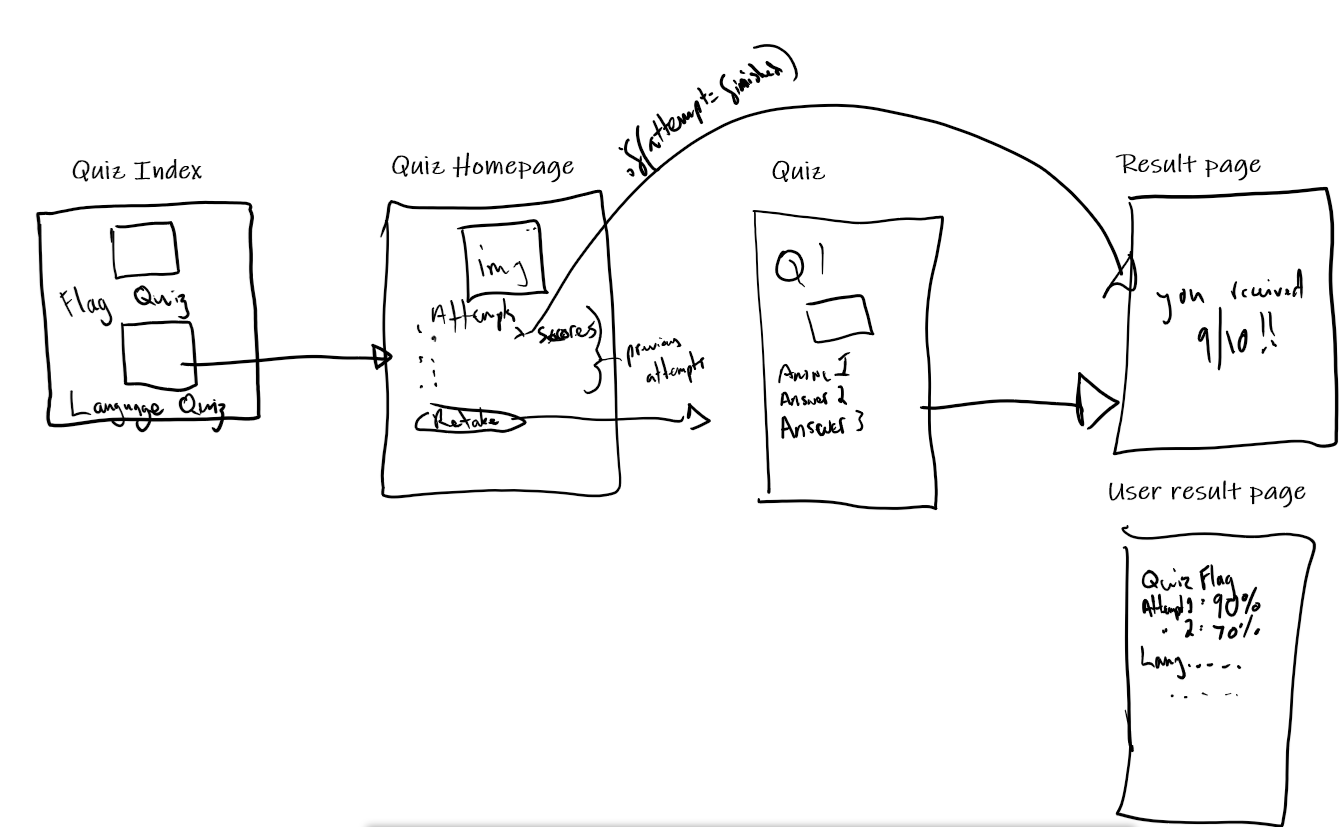 if(attempt = finished)
Quiz Index
Flag Quiz
Language Quiz
Quiz Homepage
img
Attempts
scores
previous
attempts
Retake
Quiz
Q1
Answer 1
Answer 2
Answer 3
Result page
you received
9/10!!
User result page
Quiz Flag
Attempt 1: 90%
" 2: 70%
Lang.....
.....